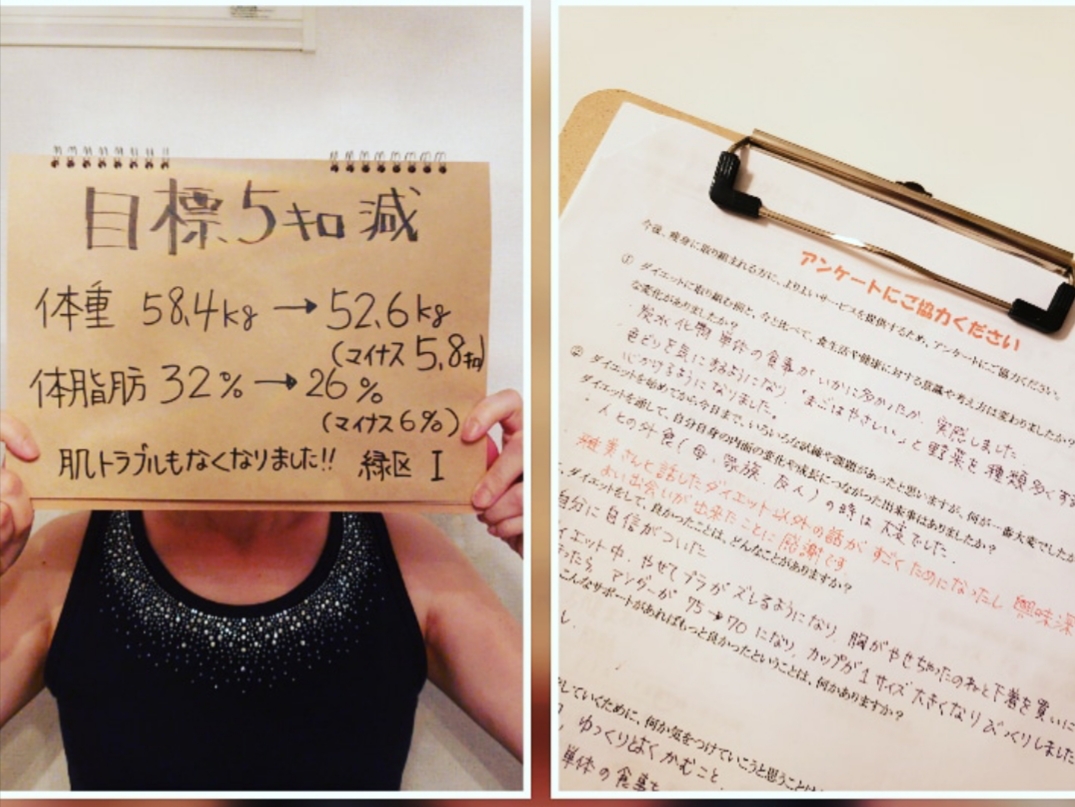 目標5キロ減
体重 58.4kg → 52.6kg
(マイナス 5.8キロ)
体脂肪 32% → 26%
(マイナス6%)
肌トラブルもなくなりました!! 緑区 I
アンケートにご協力ください
今後、痩身に取り組まれる方に、よりよいサービスを提供するため、アンケートにご協力ください。
① ダイエットに取り組む前と、今と比べて、食生活や健康に対する意識や考え方は変わりましたか?
な変化がありましたか?
・炭水化物単体の食事がいかに多かったか、実感しました。
色どりを気にするようになり、"まごはやさしい"と野菜を種類多くする
心がけるようになりました。
② ダイエットを始めてから今日まで、いろいろな試練や課題があったと思いますが、何が一番大変でしたか
・人との外食(母、家族、友人)の時は大変でした。
ダイエットを通して、自分自身の内面の変化や成長につながった出来事はありましたか?
さんと話したダイエット以外の話がすごくためになったし 興味深
よい出会いが出来たことに感謝です。
ダイエットをして、良かったことは、どんなことがありますか?
自分に自信がついた
イエット中、やせてブラがズレるようになり、胸がやせちゃったのねと下着を買いに
ったら、アンダーが 75→70 になり、カップが1サイズ大きくなりびっくりしました
こんなサポートがあればもっと良かったということは、何かありますか?
し
していくために、何か気をつけていこうと思うことは
ゆっくりよくかむこと、
単体の食事を